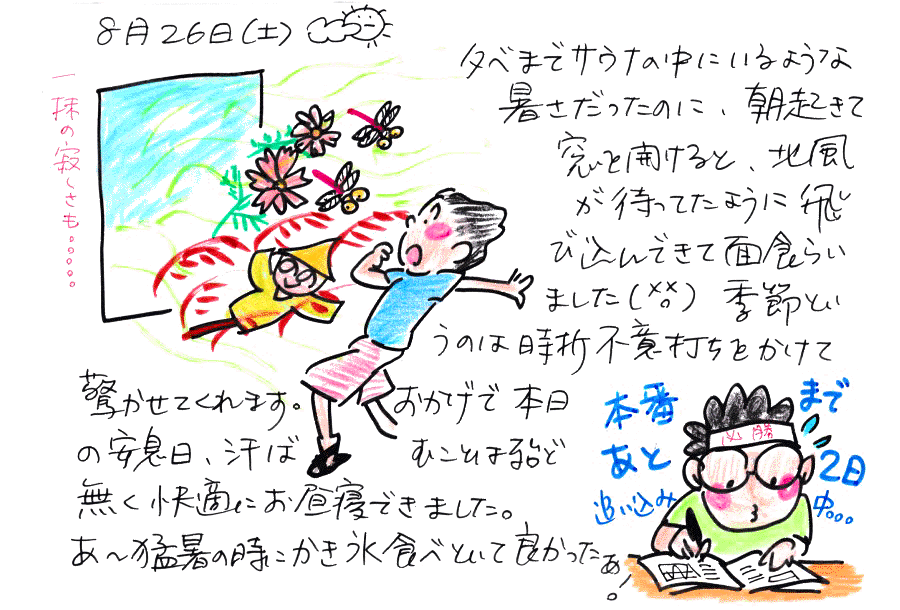 8月26日(土)
一抹の寂しさも。。。。。
夕べまでサウナの中にいるような
暑さだったのに、朝起きて
窓を開けると、地風
が待ってたように飛
び込んできて面食らい
ました(××。) 季節とい
うのは時折不意打ちをかけて
驚かせてくれます。おかげで本日
の安息日、汗ばむことは殆ど
無く快適にお昼寝できました。
あ〜猛暑の時にかき氷食べといて良かったぁ!
本番まで
あと2日
追い込み中。。。
必勝